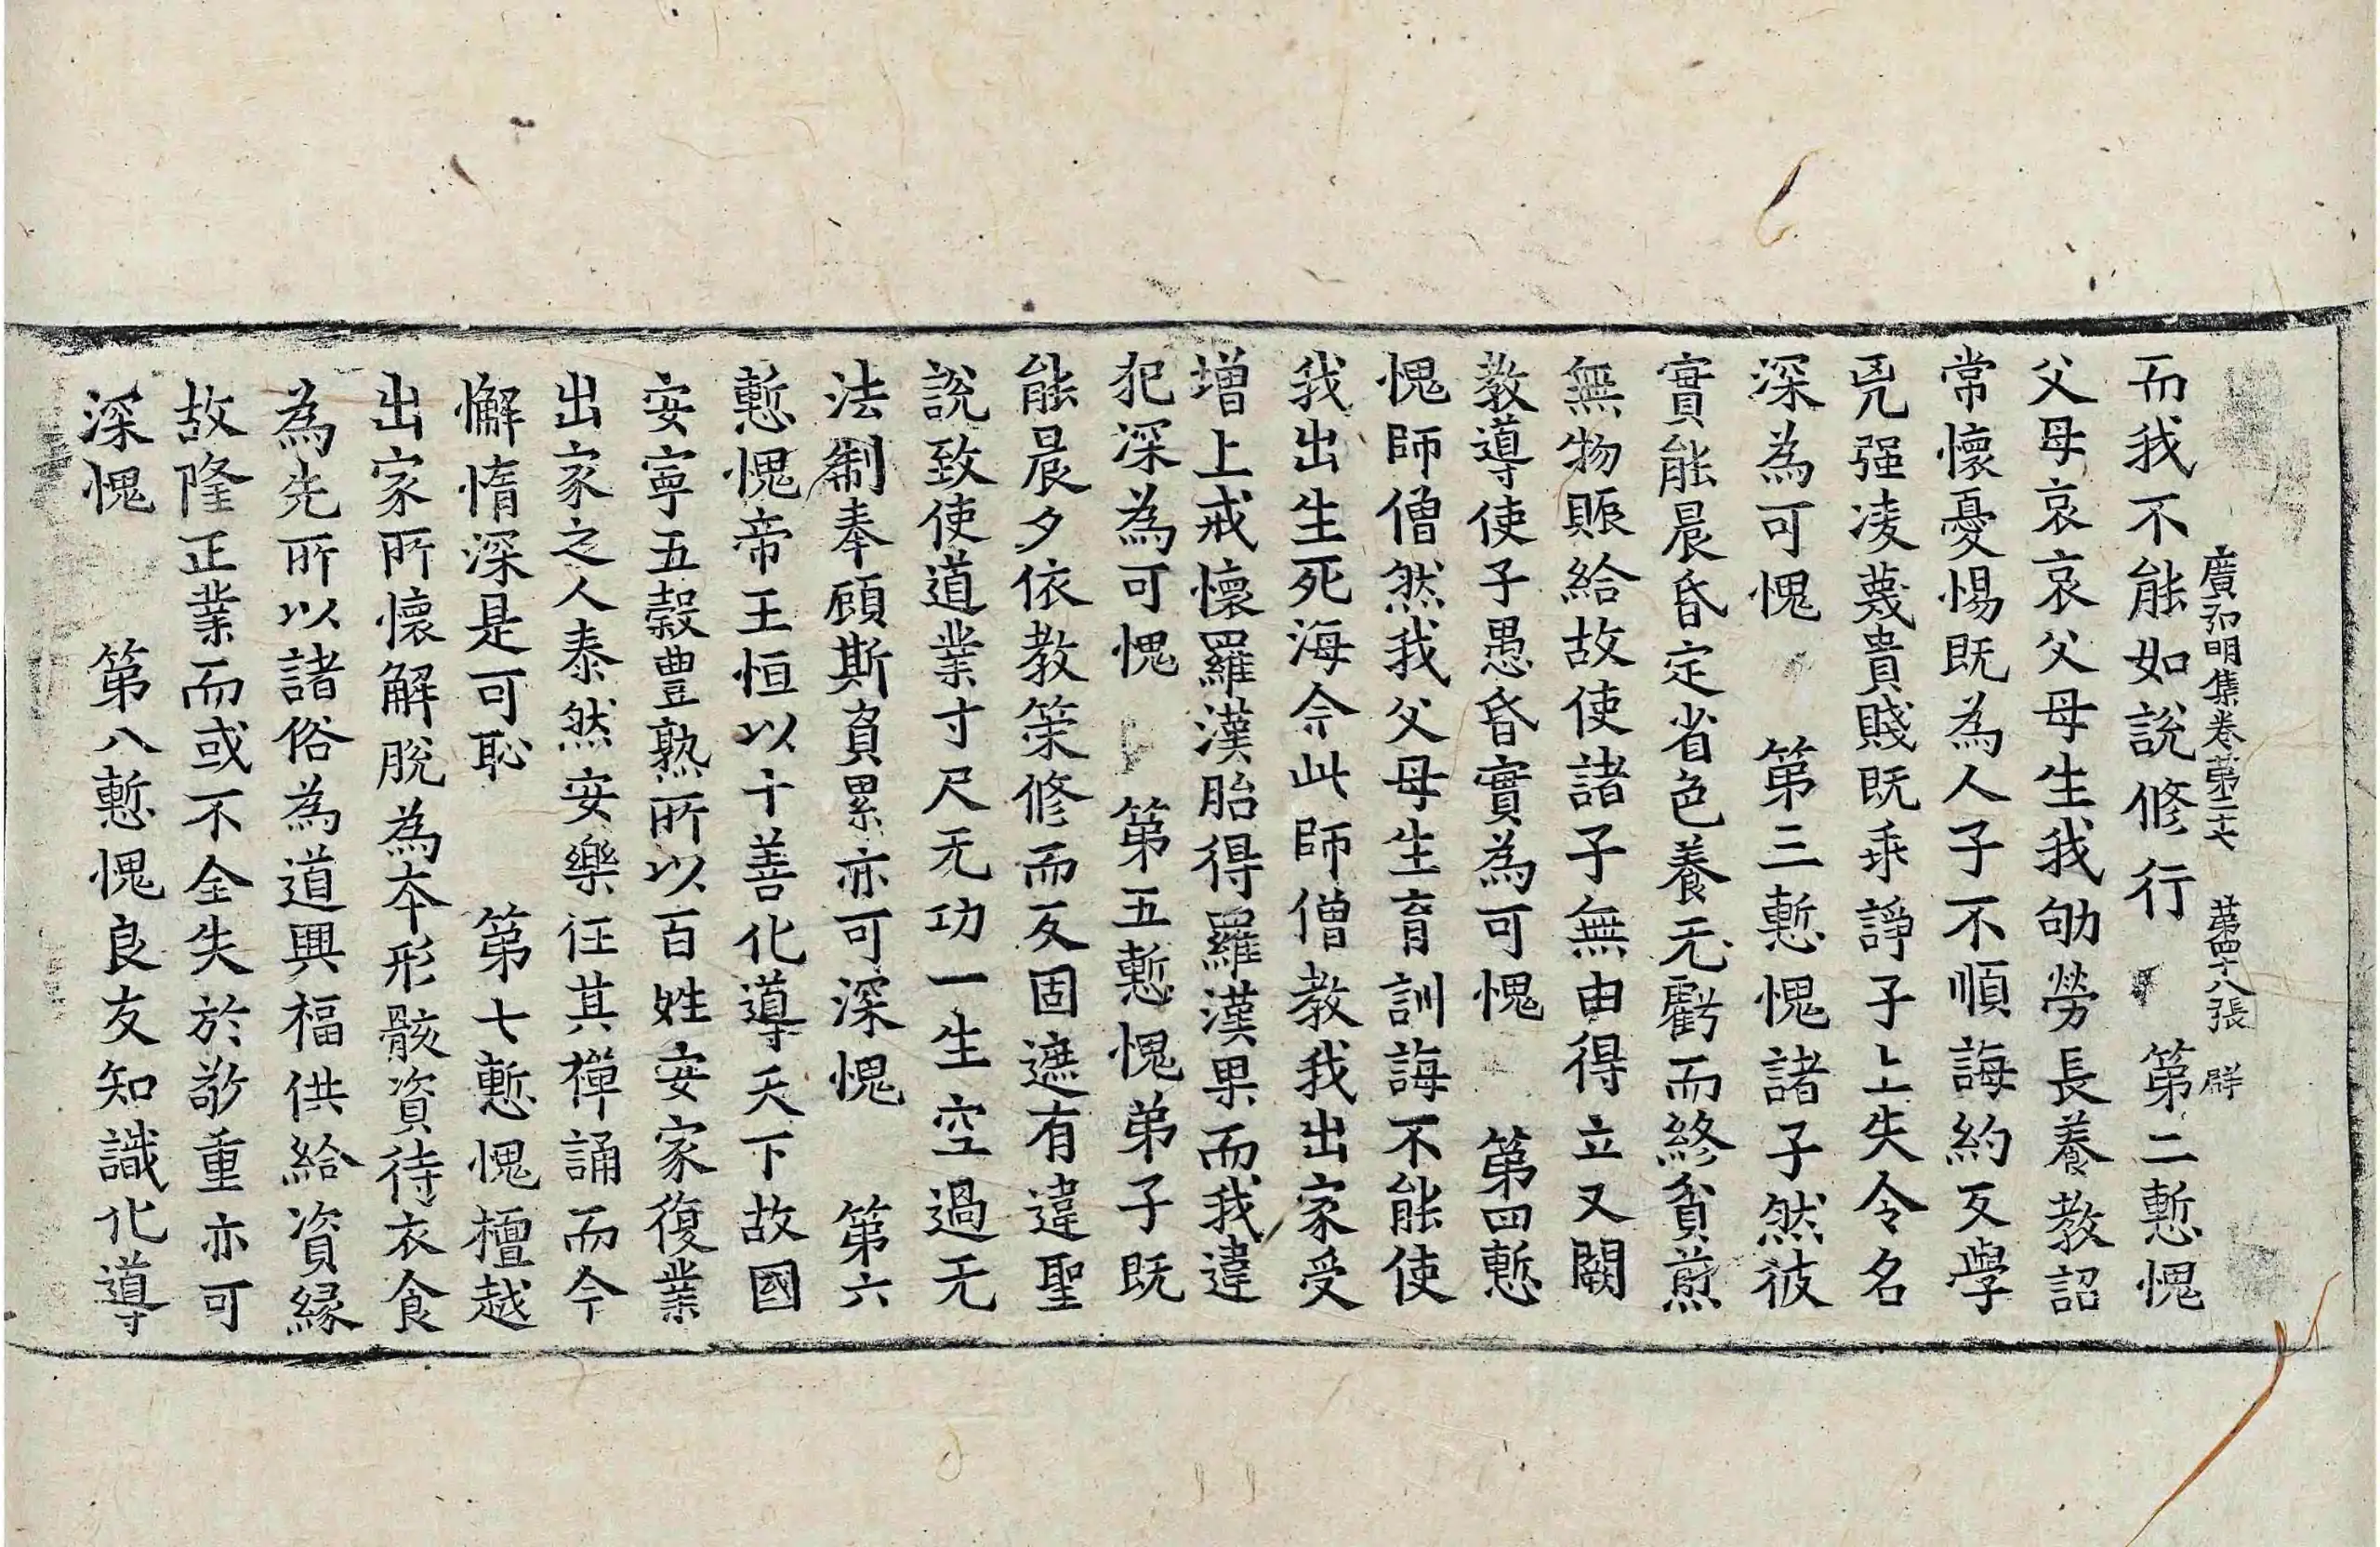 廣弘明集卷第二十七 第四十八張 群
而我不能如說修行 第二慙愧
父母哀哀父母生我劬勞長養教詔
常懷憂惕既為人子不順誨約反學
兇强凌蔑貴賤既乖諍子上失令名
深為可愧 第三慙愧諸子然彼
實能晨昏定省色養无虧而終貧煎
無物賑給故使諸子無由得立又闕
教導使子愚昏實為可愧 第四慙
愧師僧然我父母生育訓誨不能使
我出生死海今此師僧教我出家受
增上戒懷羅漢胎得羅漢果而我違
犯深為可愧 第五慙愧弟子既
能晨夕依教策修而反固遮有違聖
說致使道業寸尺无功一生空過无
法制奉顧斯負累亦可深愧 第六
慙愧帝王恒以十善化導天下故國
安寧五穀豊熟所以百姓安家復業
出家之人泰然安樂任其禪誦而今
懈惰深是可恥 第七慙愧檀越
出家所懷解脫為本形骸資待衣食
為先所以諸俗為道興福供給資緣
故隆正業而或不全失於敬重亦可
深愧 第八慙愧良友知識化導